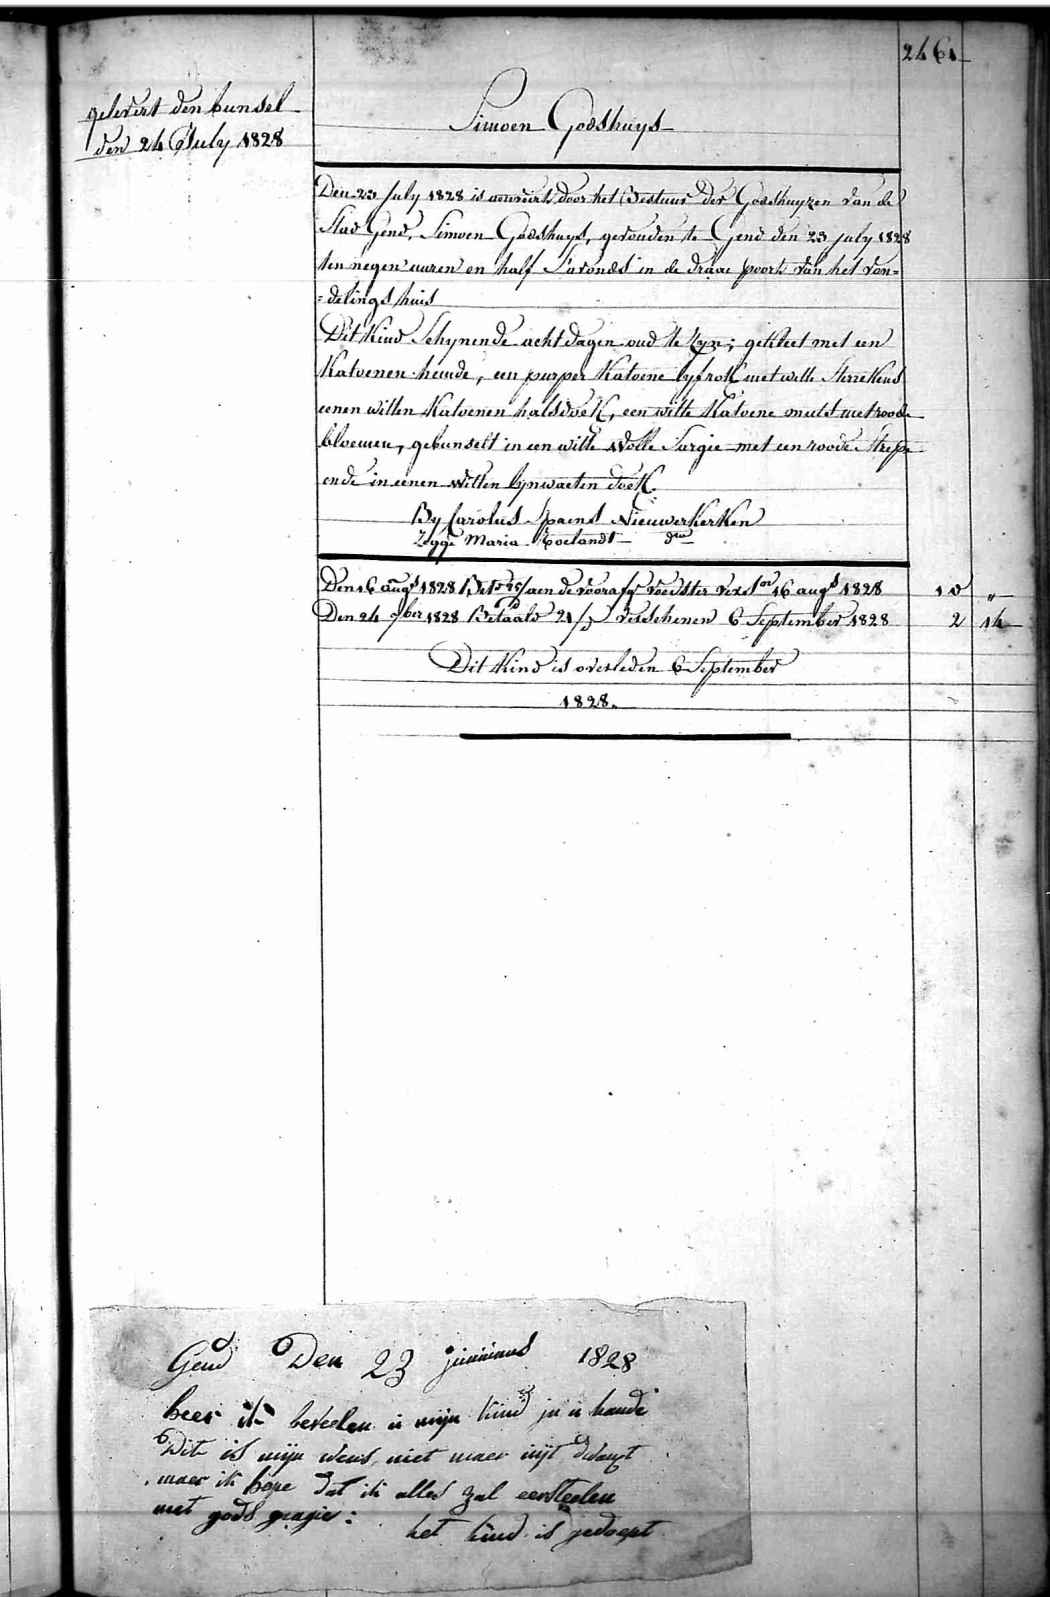 2461
gelevert den bunsel
den 24 July 1828
Simoen Godshuys
Den 23 July 1828 is door het Bestuur der Godshuyzen van de
Stad Gend, Simoen Godshuys, gevonden te Gend den 23 july 1828
ten negen uuren en half s'avonds in de draae poort van het von=
=delings huis
Dit Kind Schynende acht dagen oud te zyn; gekleet met een
Katoenen hemde, een purper Katoene lyfrok met witte Sterrekens
eenen witten Katoenen halsdoek, een witte Katoene muts met roode
bloemen, gebunselt in een witte Wolle Sargie met een roode Strepe
ende in eenen witten lynwaeten doek.
By Carolus Spaens Nieuwerkerken
Zogge Maria Roelandt dto
Den 16 augs 1828 aen de voorafg voedster 16 augs 1828 10 "
Den 24 9ber 1828 Betaald 21/ verschenen 6 September 1828 2 14
Dit Kind is overleden 6 September
1828.
Gend Den 23 juninus 1828
heer ik beveelen u mijn kind in u hande
Dit is mijn wens niet maer uijt dwangt
maer ik hope dat ik alles zal eersteelen
met gods gragie: het kind is gedoept